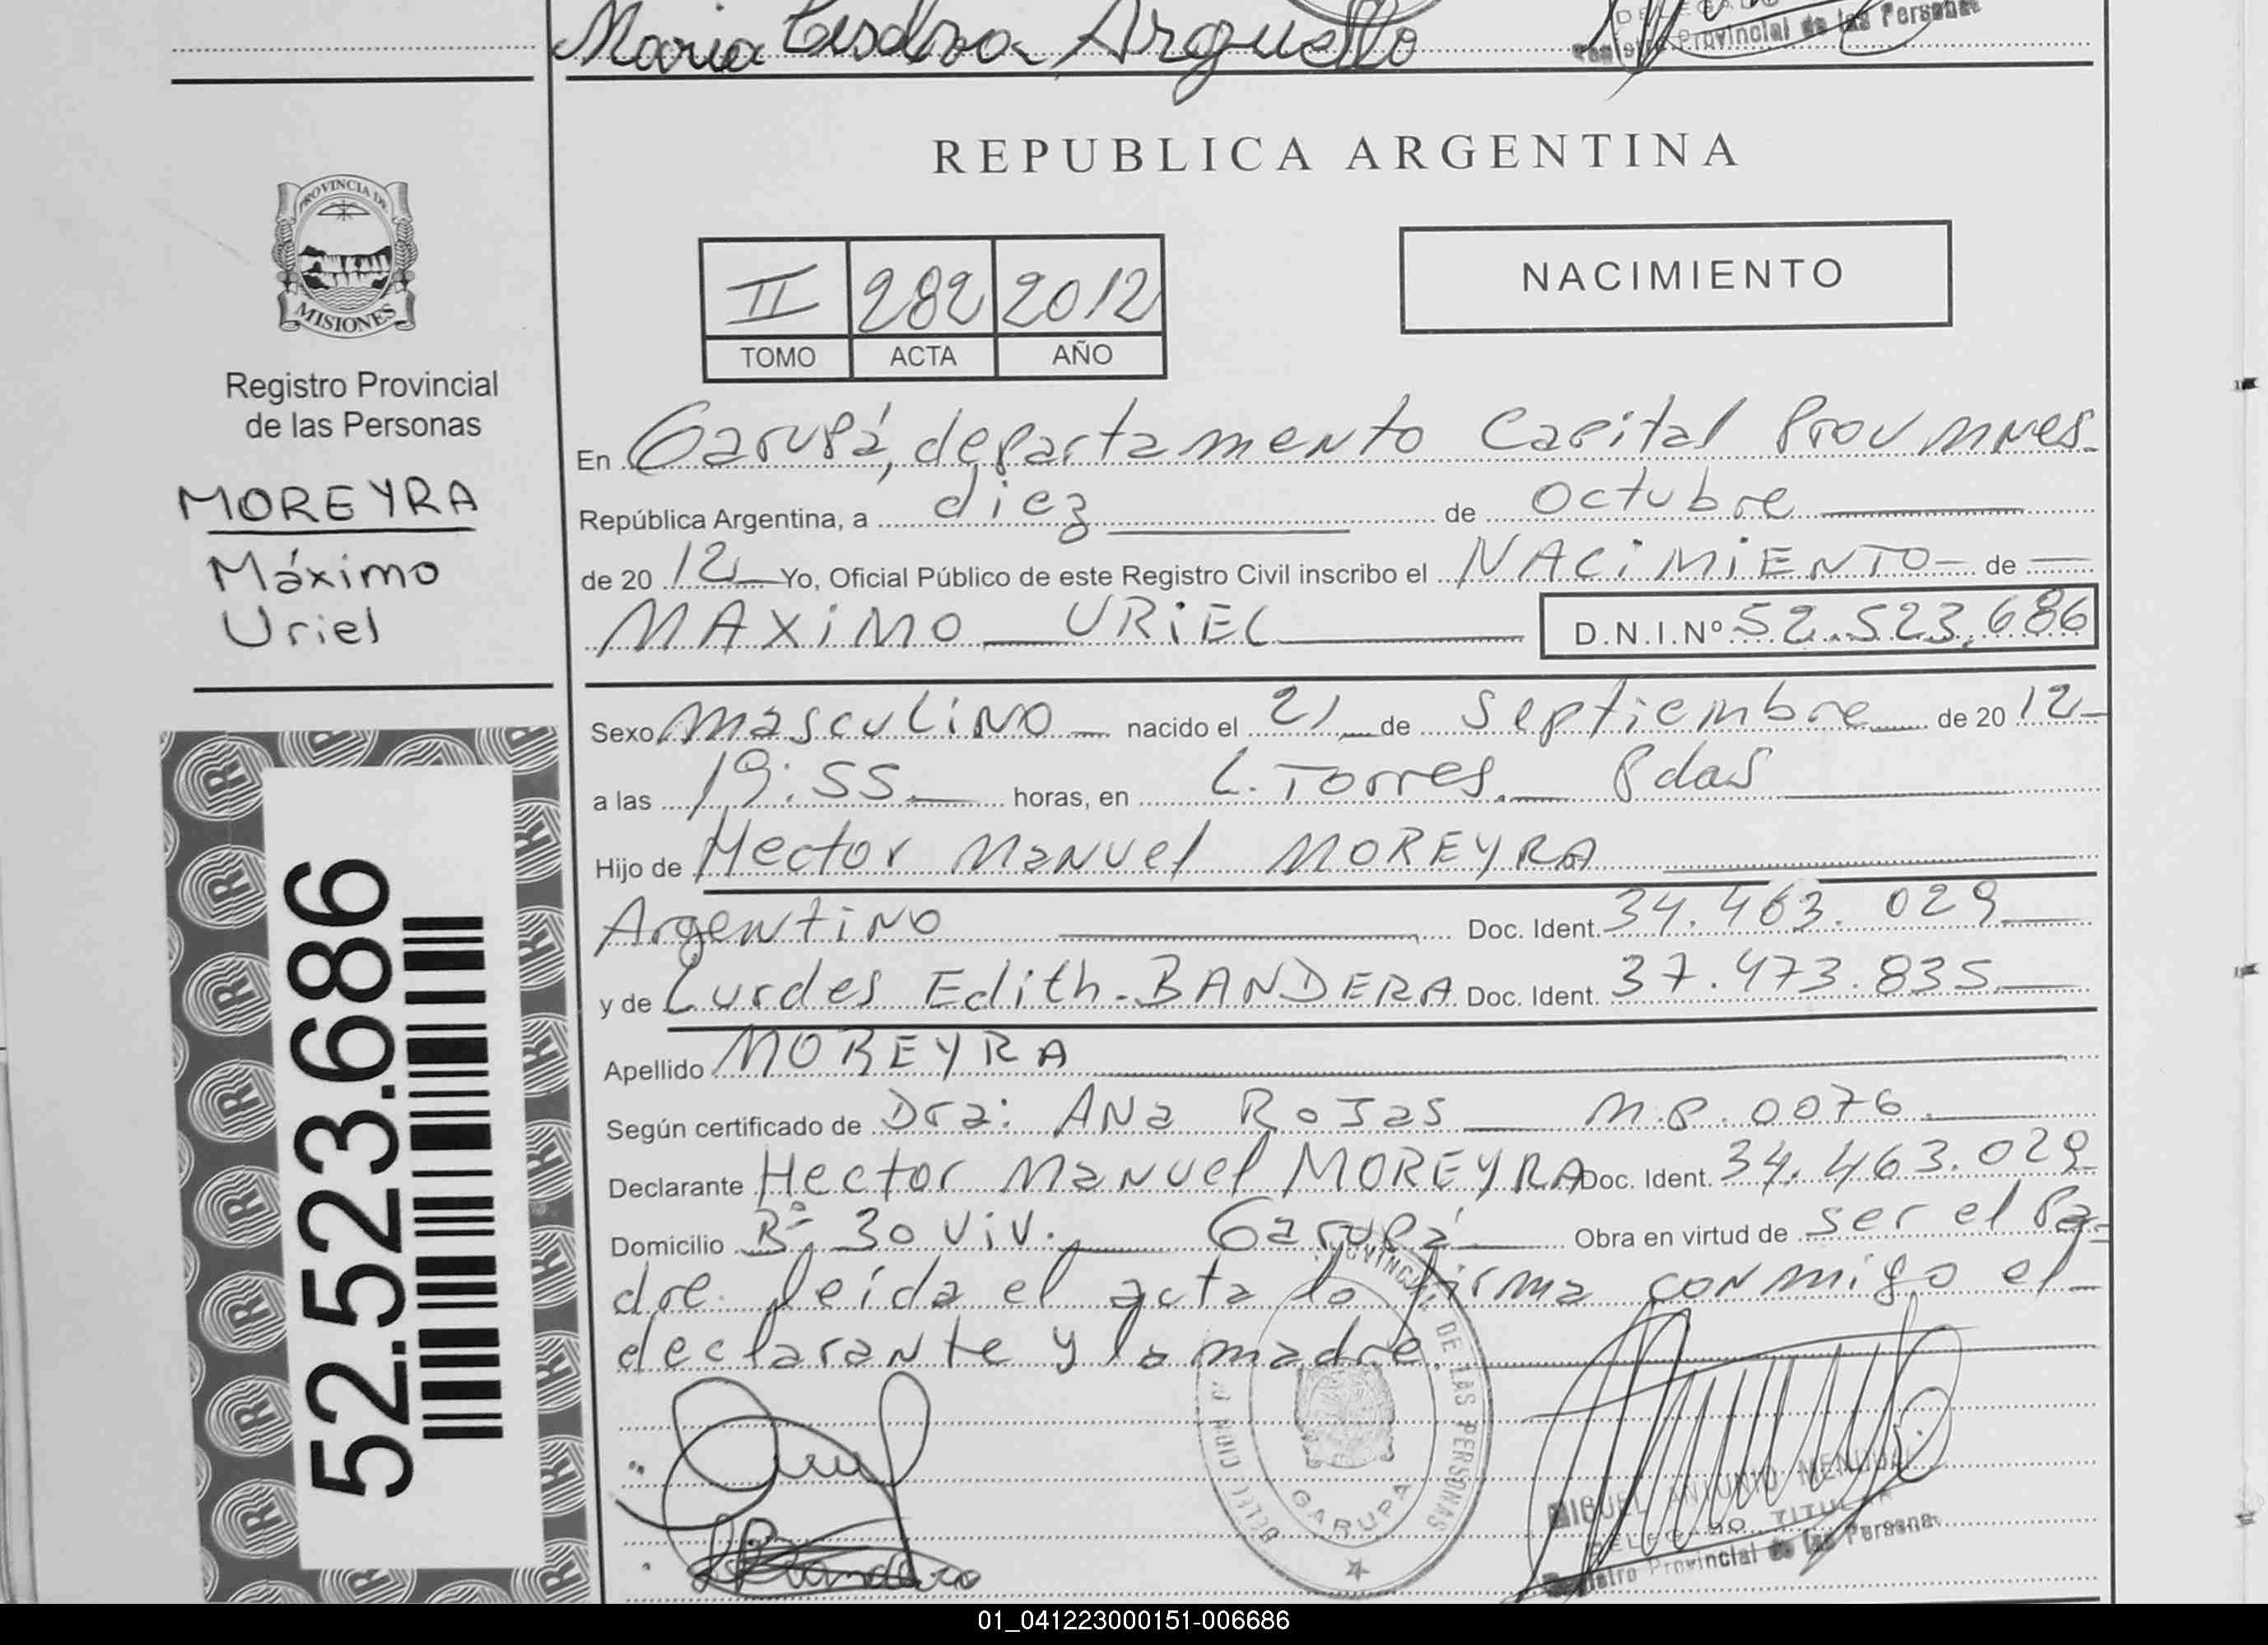 Maria Arguello
Provincial de las Personas
PROVINCIA DE
MISIONES
Registro Provincial
de las Personas
MOREYRA
Máximo
Uriel
52.523.686
REPUBLICA ARGENTINA
II 282 2012
TOMO ACTA AÑO
NACIMIENTO
En Garupá, departamento Capital Prov Mnes.
República Argentina, a diez de octubre
de 20 12 Yo, Oficial Público de este Registro Civil inscribo el NACiMiENTO de
MAXiMO URiEL D.N.I.Nº 52.523.686
Sexo masculiNO nacido el 21 de Septiembre de 20 12
a las 19:55 horas, en L. Torres. Pdas
Hijo de Hector Manuel MOREYRA
Argentino Doc. Ident. 34.463.029
y de Lurdes Edith BANDERA Doc. Ident. 37.473.835
Apellido MOREYRA
Según certificado de Dra: ANa RoJas M.P. 0076
Declarante Hector Manuel MOREYRA Doc. Ident. 34.463.029
Domicilio Bº 30 Viv. Garupá Obra en virtud de ser el Pa-
dre. leida el acta la firma conmigo el
declarante y la madre.
PROVINCIAL DE LAS PERSONAS
GARUPA
MIGUEL ANTONIO
DELEGADO TITULAR
Registro Provincial de las Personas
01_041223000151-006686